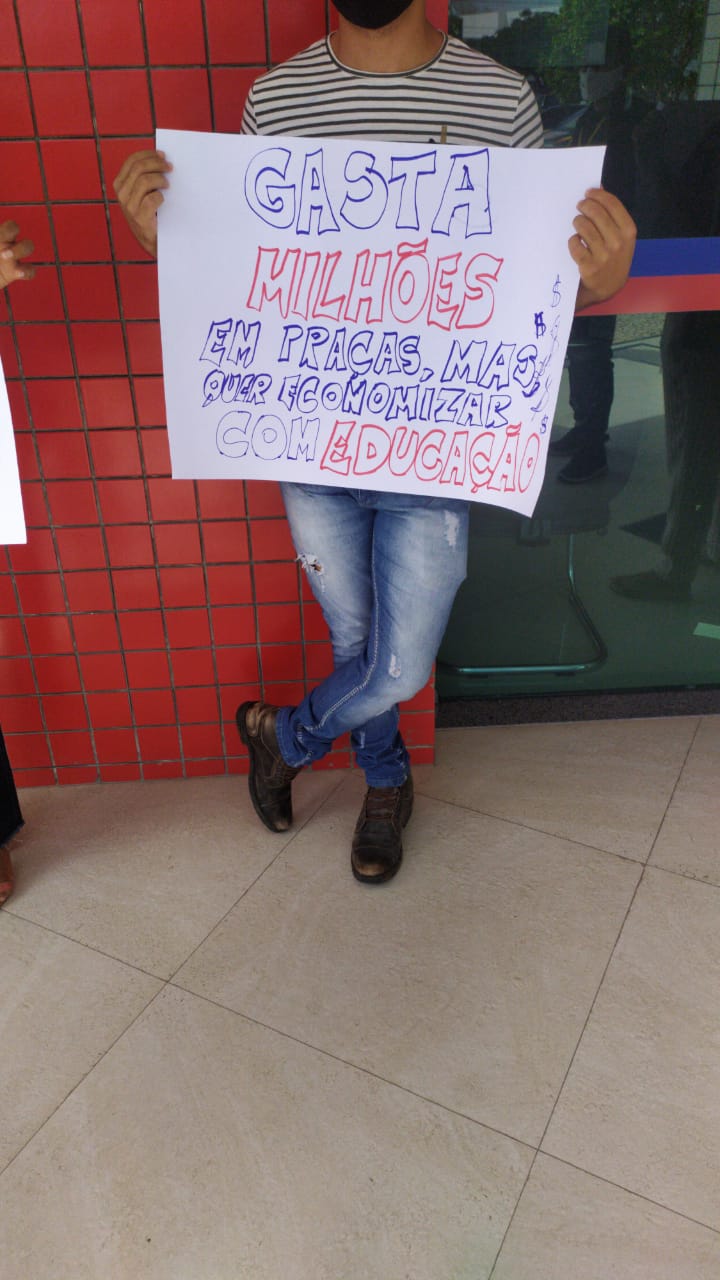 GASTA
MILHÕES
EM PRAÇAS, MAS,
QUER ECONOMIZAR
COM EDUCAÇÃO